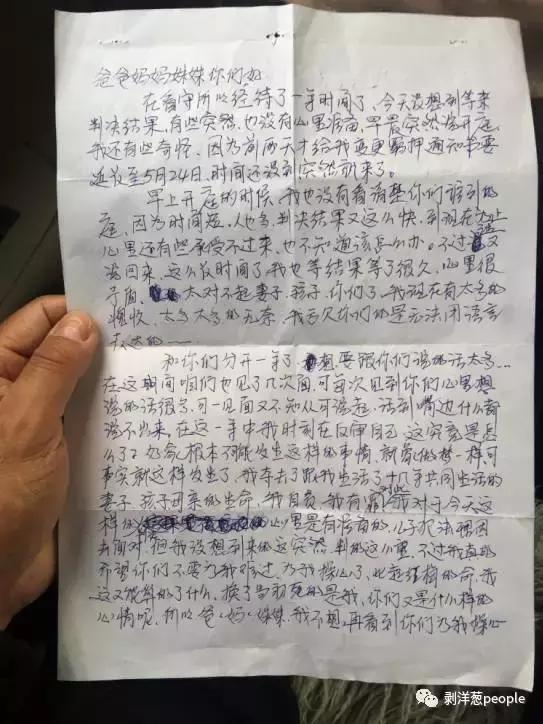 爸爸妈妈妹妹你们好
在看守所已经待了一年时间了,今天没想到等来
判决结果,有些突然,也没有心里准备,早晨突然让开庭
我还有些奇怪,因为前两天才给我变更羁押通知书要
延长至5月24日,时间还没到突然就来了。
早上开庭的时候,我也没有看清楚你们谁到的
庭,因为时间短,人也多,判决结果又这么快,到现在为止
心里还有些承受不过来,也不知道该怎么办。不过话又
说回来,这么长时间了,我也等结果等了很久,心里很
矛盾,太对不起妻子,孩子,你们了,我现在有太多的
悔恨,太多太多的无奈,我亏欠你们的是无法用语言
表达的——
和你们分开一年了,想要跟你们说的话太多…
在这期间咱们也见了几次面,可每次见到你们心里想
说的话很多,可一见面又不知从何说起,话到嘴边什么都
说不出来,在这一年中我时刻在反审自己,这究竟是怎
么了?如今根本不可能发生这样的事情,就像做梦一样可
事实就这样发生了,我夺去了跟我生活了十几年共同生活的
妻子,孩子母亲的生命,我自责,我有罪,我对于今天这
样的心里是有准备的,儿子犯法理因
去面对,但我没想到来的这突然,判的这么重,不过我真的
希望你们不要为我难过,为我操心了,比起结梅的命,我
这又能算的了什么,换了当初死的是我,你们又是什么样的
心情呢,所以爸、妈、妹妹,我不想再看到你们为我操心
剥洋葱people